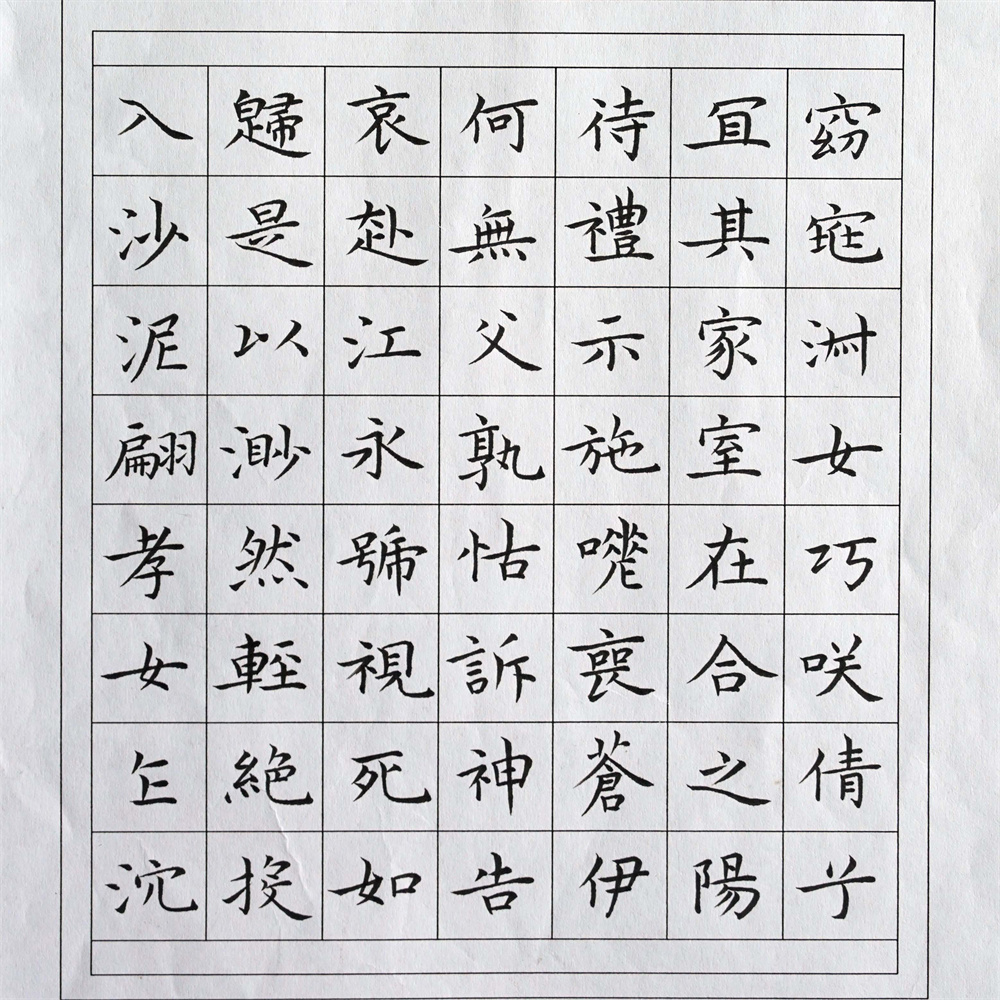 窈窕淑女巧咲倩兮
冝其家室在合之陽
待禮示施嗟喪蒼伊
何無父孰怙訴神告
哀赴江永號視死如
歸是以渺然輕絕投
入沙泥翩孝女乍沉